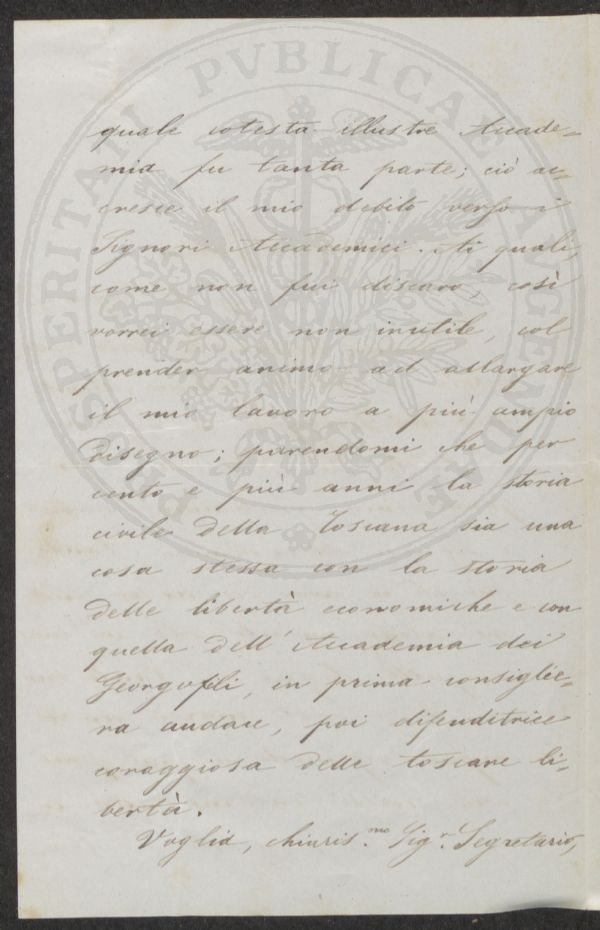 PROSPERITATI PVBLICAE AVGENDAE
quale cotesta illustre Accade-
mia fu tanta parte; ciò ac-
cresce il mio debito verso i
Signori Accademici. Ai quali,
come non fui discaro, così
vorrei essere non inutile, col
prender animo ad allargare
il mio lavoro a più ampio
disegno; parendomi che per
cento e più anni la storia
civile della Toscana sia una
cosa stessa con la storia
delle libertà economiche e con
quella dell'Accademia dei
Georgofili, in prima consiglie-
ra audace, poi difenditrice
coraggiosa delle toscane li-
bertà.
Voglia, chiaris.mo Sig.r Segretario,